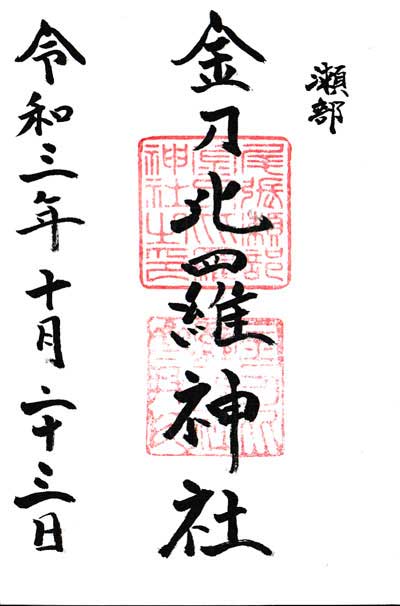 瀬部
金刀比羅神社
令和三年十月二十三日